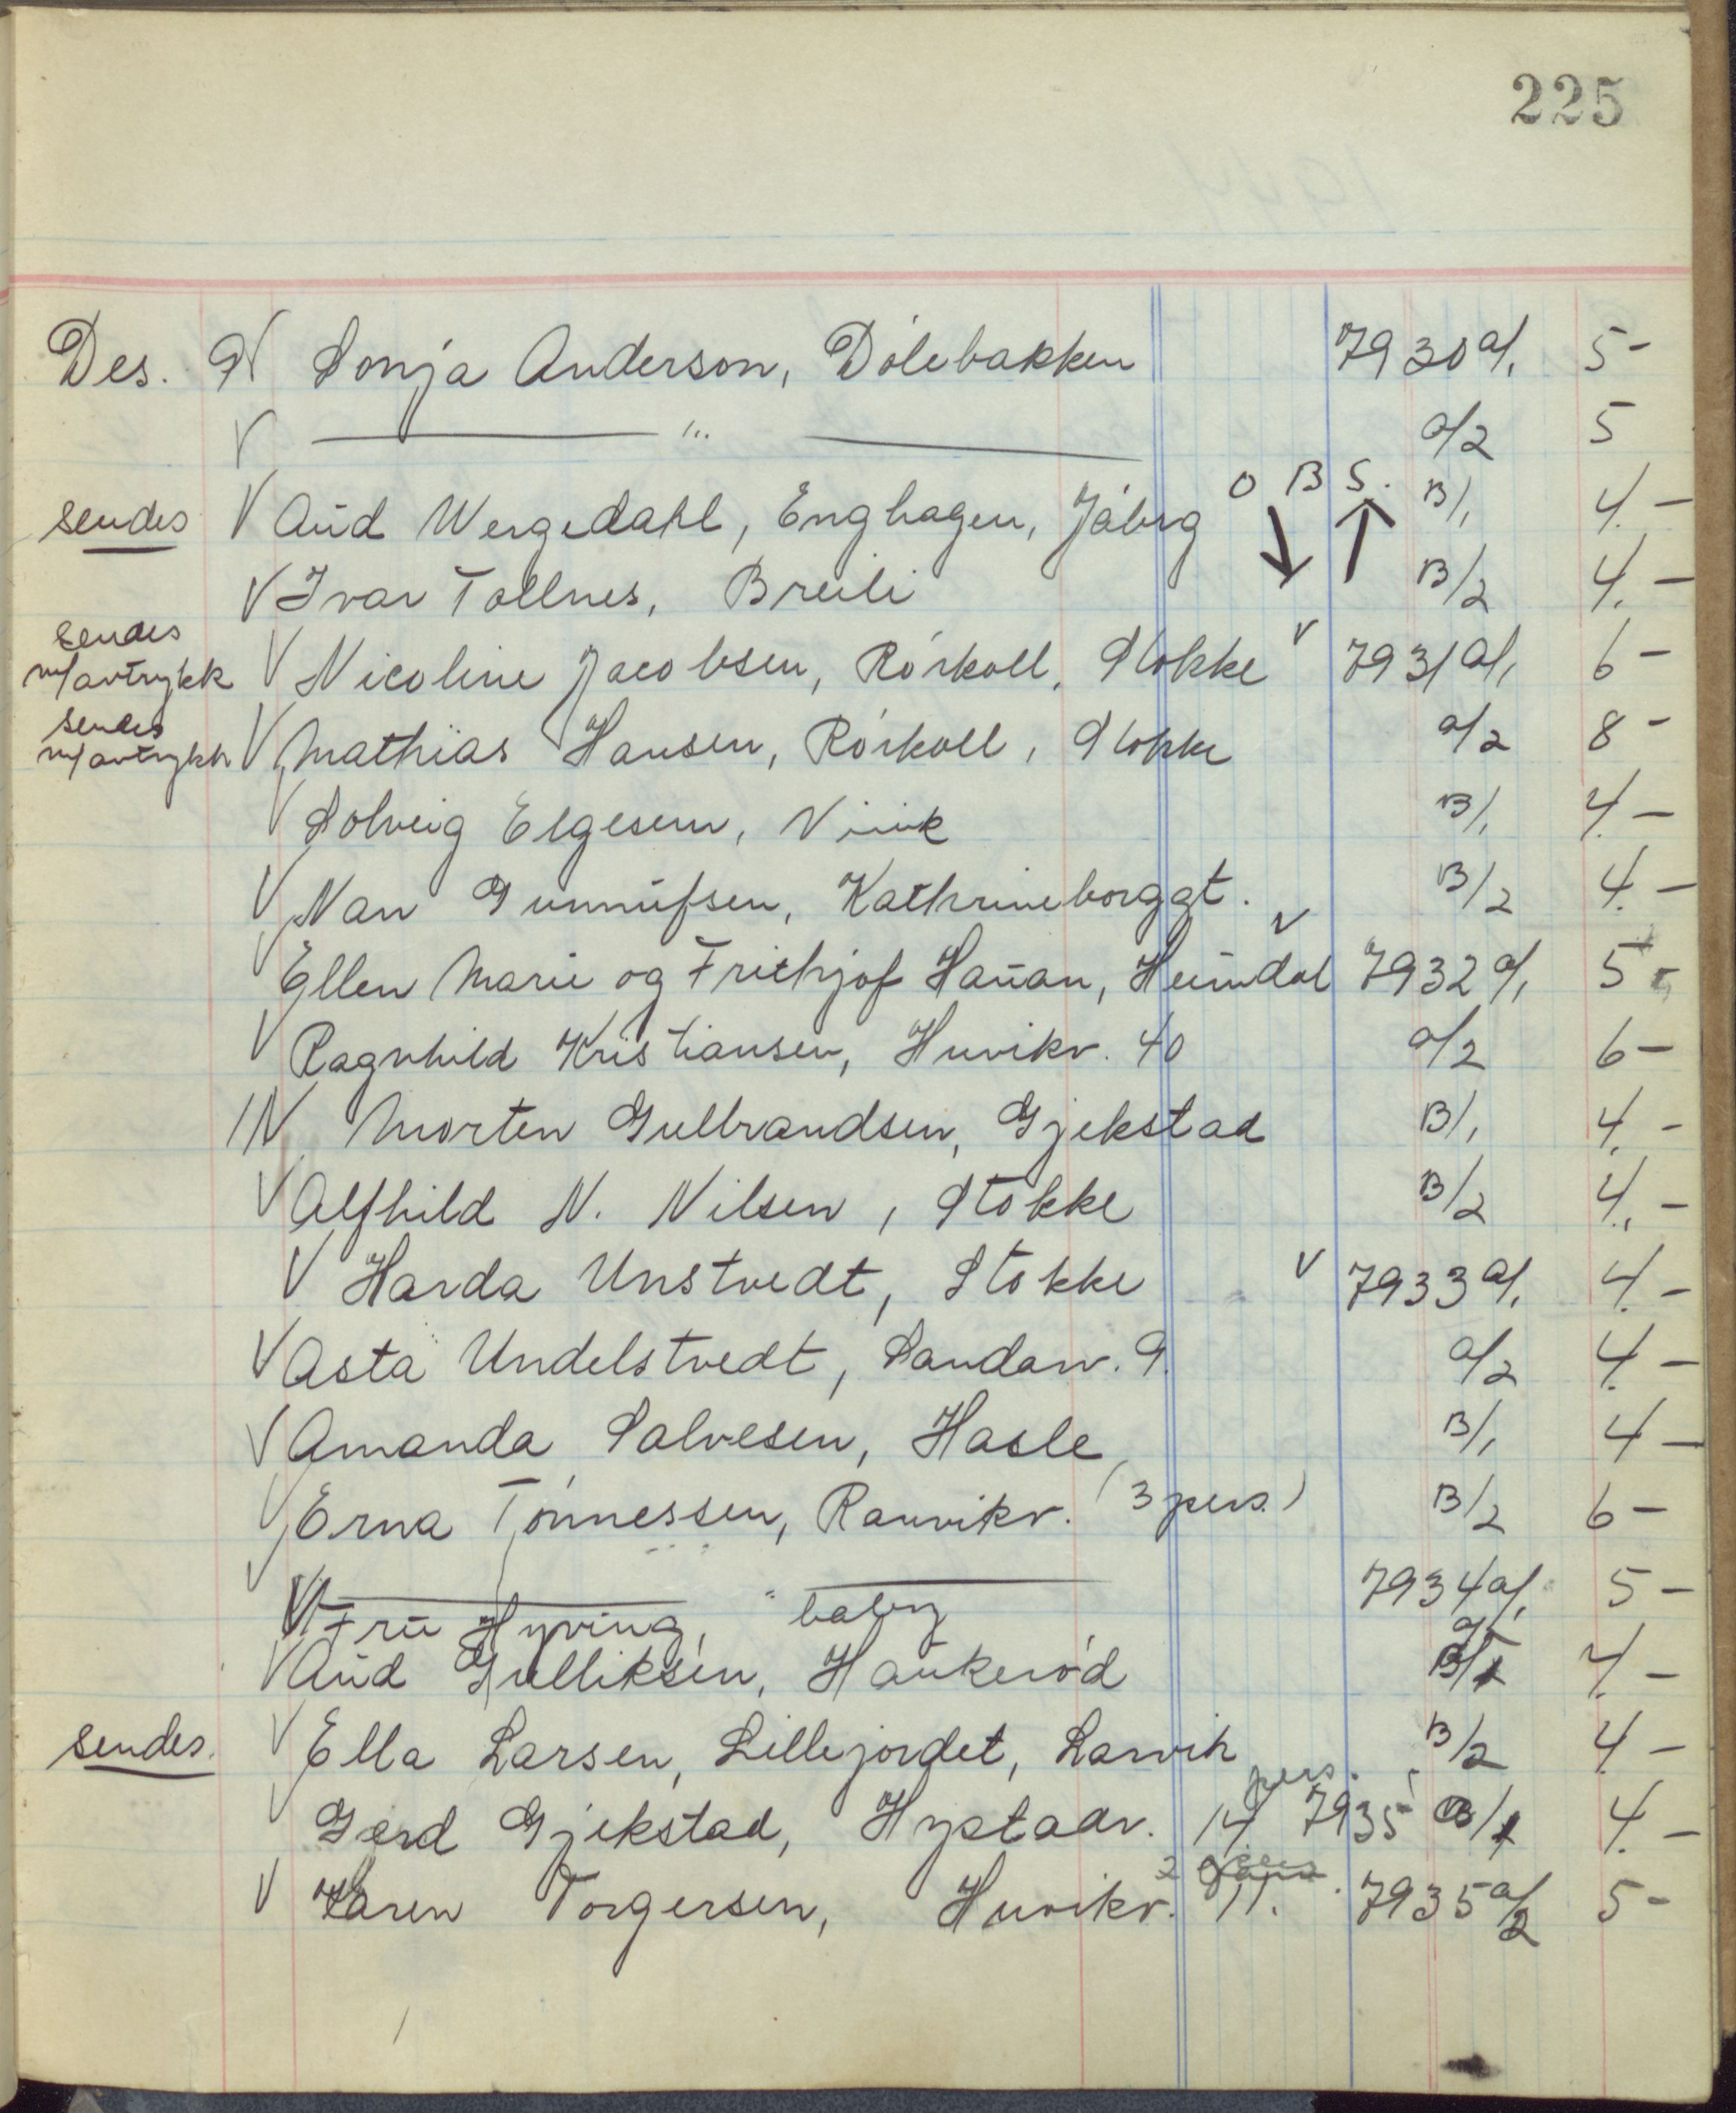 225
Des. 9 V Sonja Anderson, Dólebakken 7930 a/1 5-
V —— " —— a/2 5
O B S.
sendes V Aud Wergedahl, Enghagen, Jáberg B/1 4.-
V Ivar Tollnes, Breili B/2 4.-
sendes
m/avtrykk V Nicoline Jacobsen, Rórkoll, Stokke V 7931 a/1 6-
sendes
m/avtrykk V Mathias Hansen, Rórkoll, Stokke a/2 8-
V Solveig Elgesem, Virik B/1 4.-
V Nan Gunnufsen, Kathrineborggt. B/2 4.-
V Ellen Marie og Frithjof Hauan, Heimdal V 7932 a/1 5-
V Ragnhild Kristiansen, Huvikv. 40 a/2 6-
1 V Morten Gulbrandsen, Gjekstad B/1 4.-
V Alfhild N. Nilsen, Stokke B/2 4.-
V Harda Unstvedt, Stokke V 7933 a/1 4.-
V Asta Undelstvedt, Sandarv. 9. a/2 4.-
V Amanda Salvesen, Hasle B/1 4-
V Erna Tónnessen, Ranvikv. (3 pers.) B/2 6-
V —— " —— 7934 a/1 5-
V Fru Hyving, baby a/2
V Aud Gulliksen, Haukeród B/1 4.-
sendes. V Ella Larsen, Lillejordet, Larvik B/2 4-
pers.
V Gerd Gjekstad, Hystadv. 14 7935 B/1 4.-
2 pers.
V Karen Torgersen, Huvikv. 11. 7935 a/2 5-